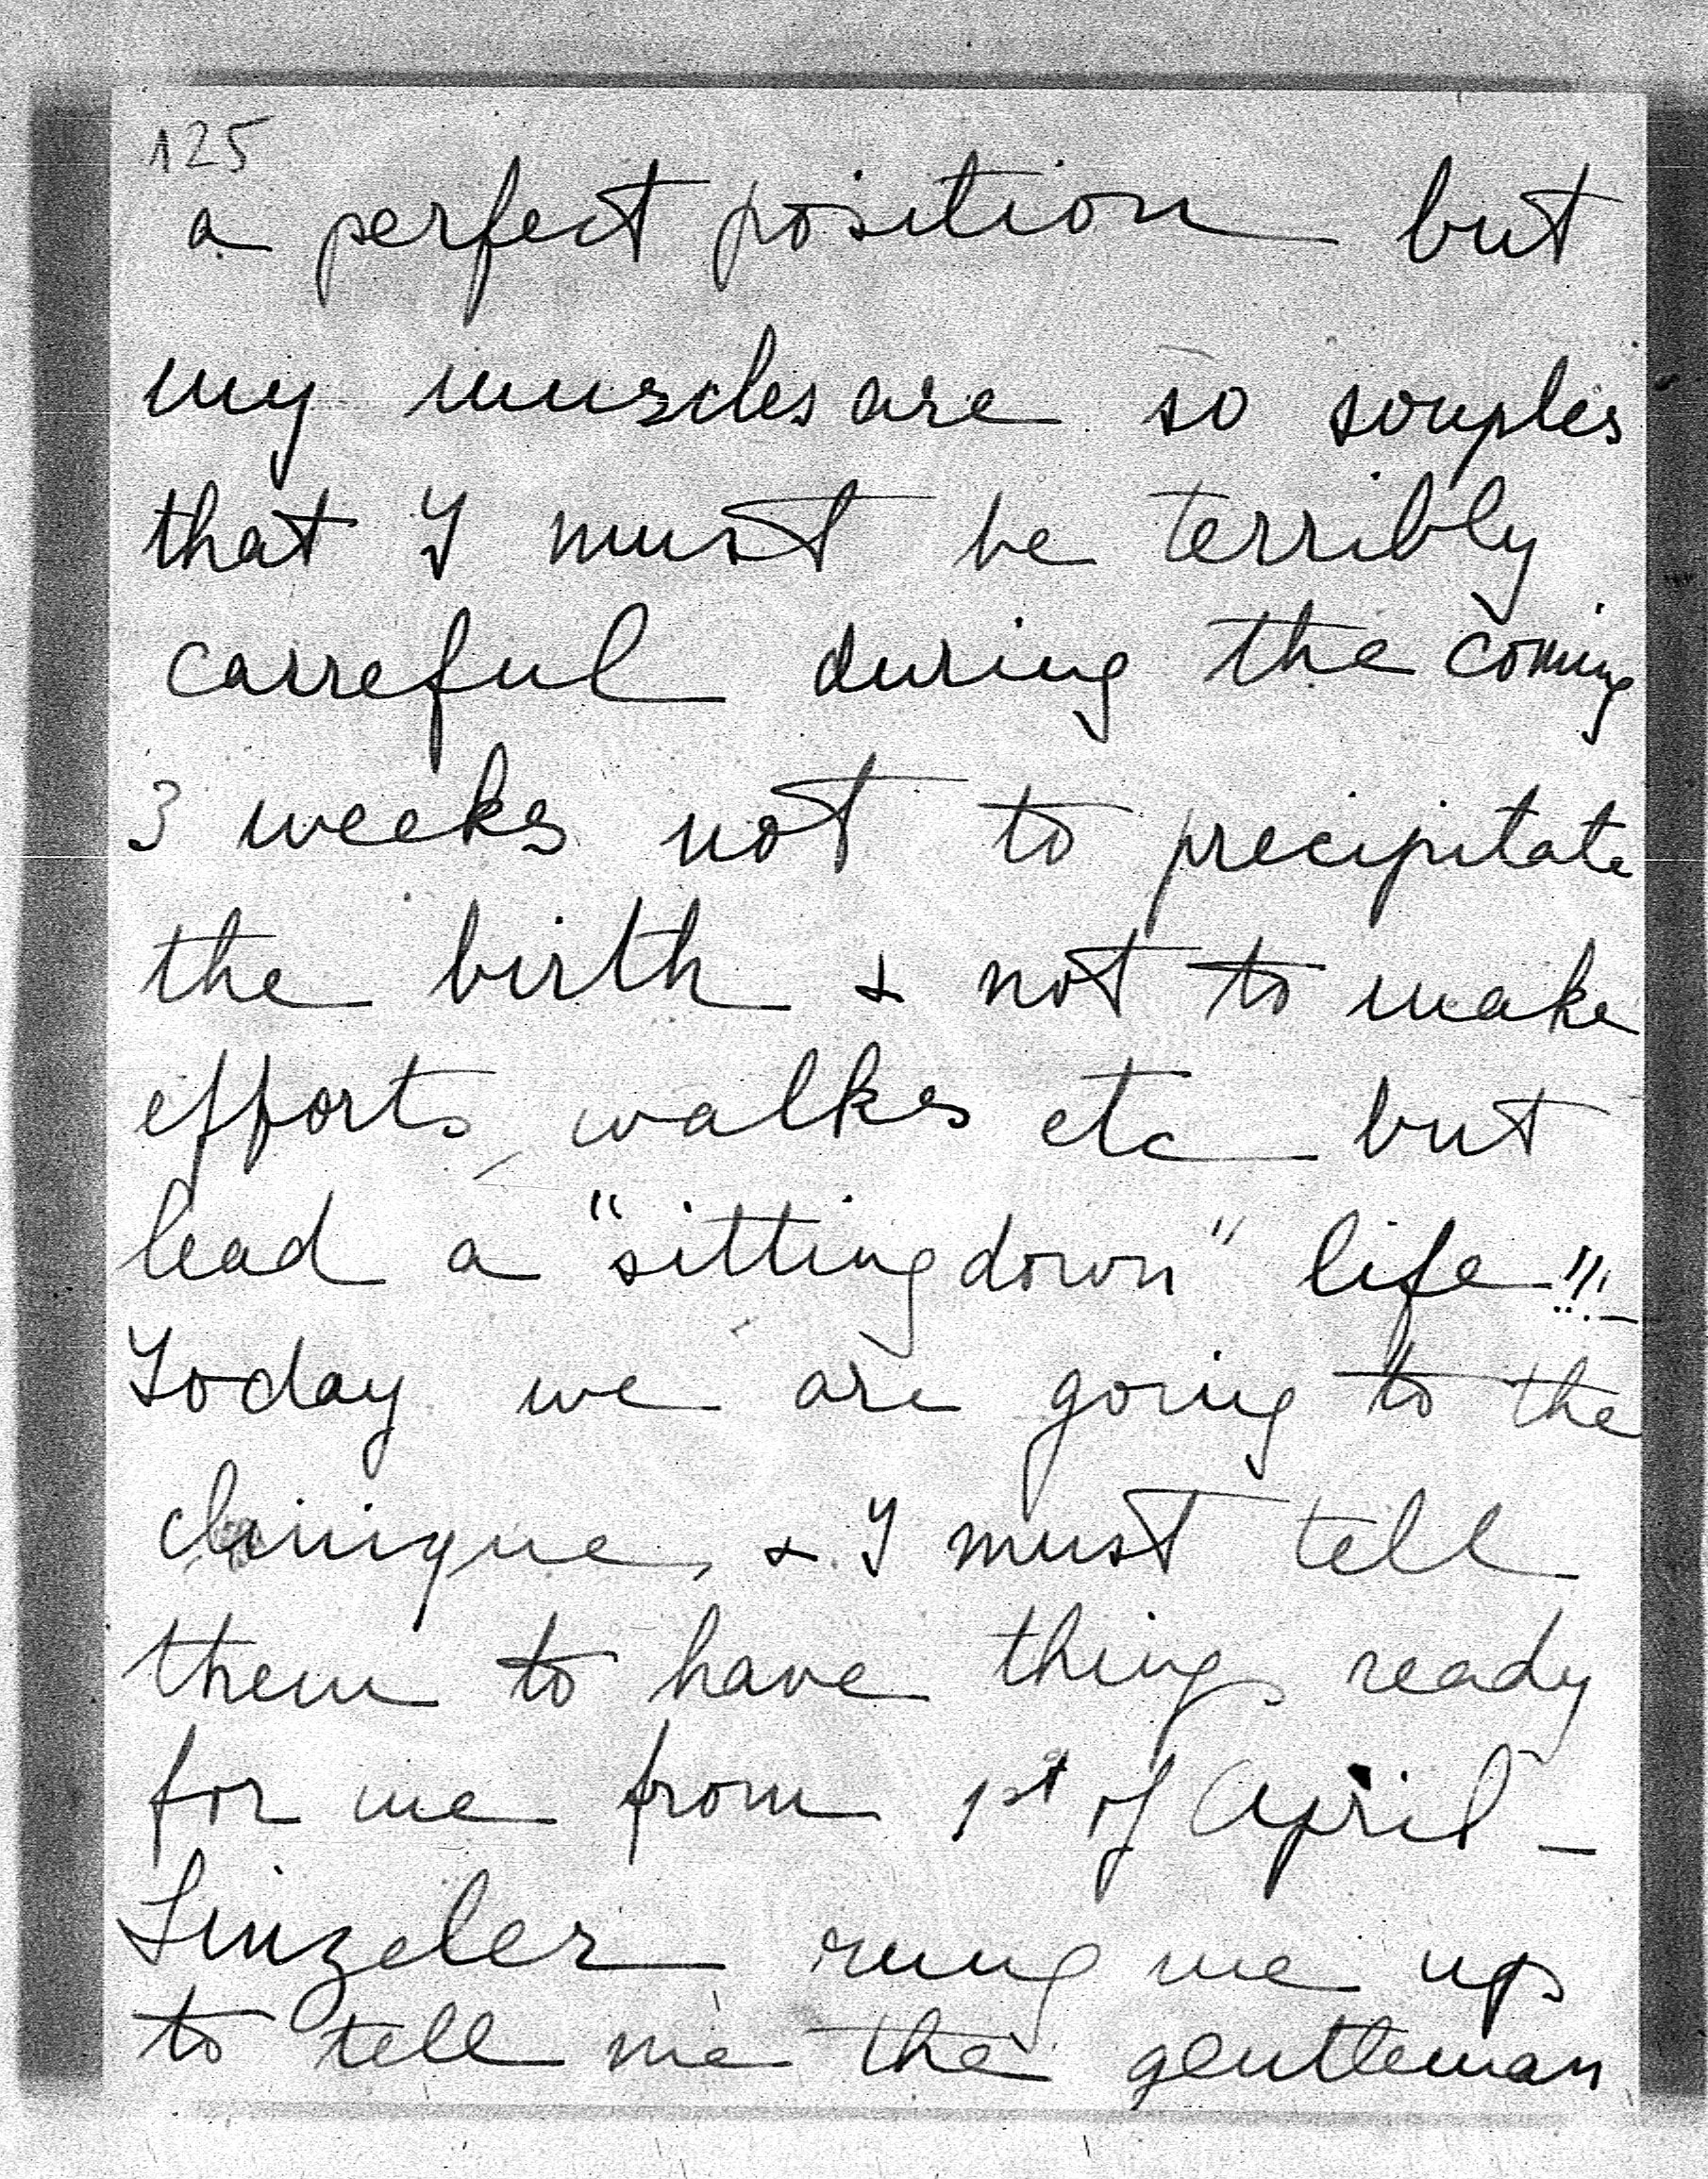 125
a perfect position but
my muscles are so souples
that I must be terribly
carreful during the coming
3 weeks not to precipitate
the birth & not to make
efforts, walks etc but
lead a "sitting down" life !!! –
Today we are going to the
clinique, & I must tell
them to have things ready
for me from 1st of April –
Linzeler rung me up
to tell me the gentleman